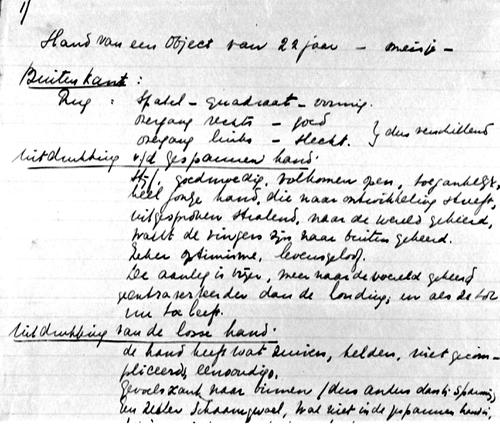 1)
Hand van een Object van 22 jaar – meisje –
Buitenkant :
Rug : Spatel – quadraat – vormig.
overgang rechts – goed
overgang links – slecht. } dus verschillend
Uitdrukking v/d gespannen hand.
goedmoedig, volkomen open, toegankelijk,
heel jonge hand, die naar ontwikkeling streeft,
uitgesproken stralend, naar de wereld gekeerd,
want de vingers zijn naar buiten gekeerd.
Zeker optimisme, levensgeloof.
De aanleg is vrijer, meer naar de wereld gekeerd
geextraverteerder dan de houding, en als de tot
nu toe leeft.
Uitdrukking van de losse hand.
de hand heeft wat zuivers, helders, niet gecom-
pliceerd, eenvoudigs.
Gevoelskant naar binnen (dus anders dan i. spanning
Een zeker schaamgevoel, wat niet in de gespannen hand i.